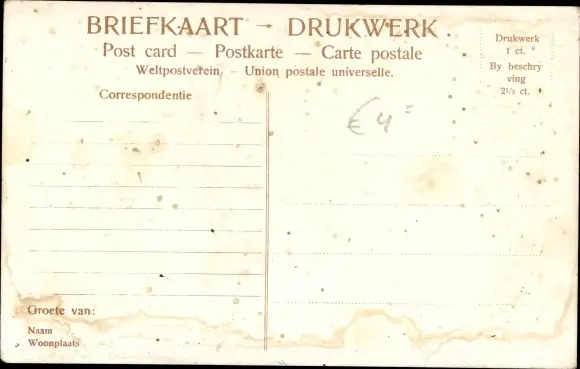 BRIEFKAART - DRUKWERK.
Post card — Postkarte — Carte postale
Weltpostverein. - Union postale universelle.
Drukwerk
1 ct.
By beschry
ving
2½ ct.
Correspondentie
€ 4 =
Groete van:
Naam
Woonplaats